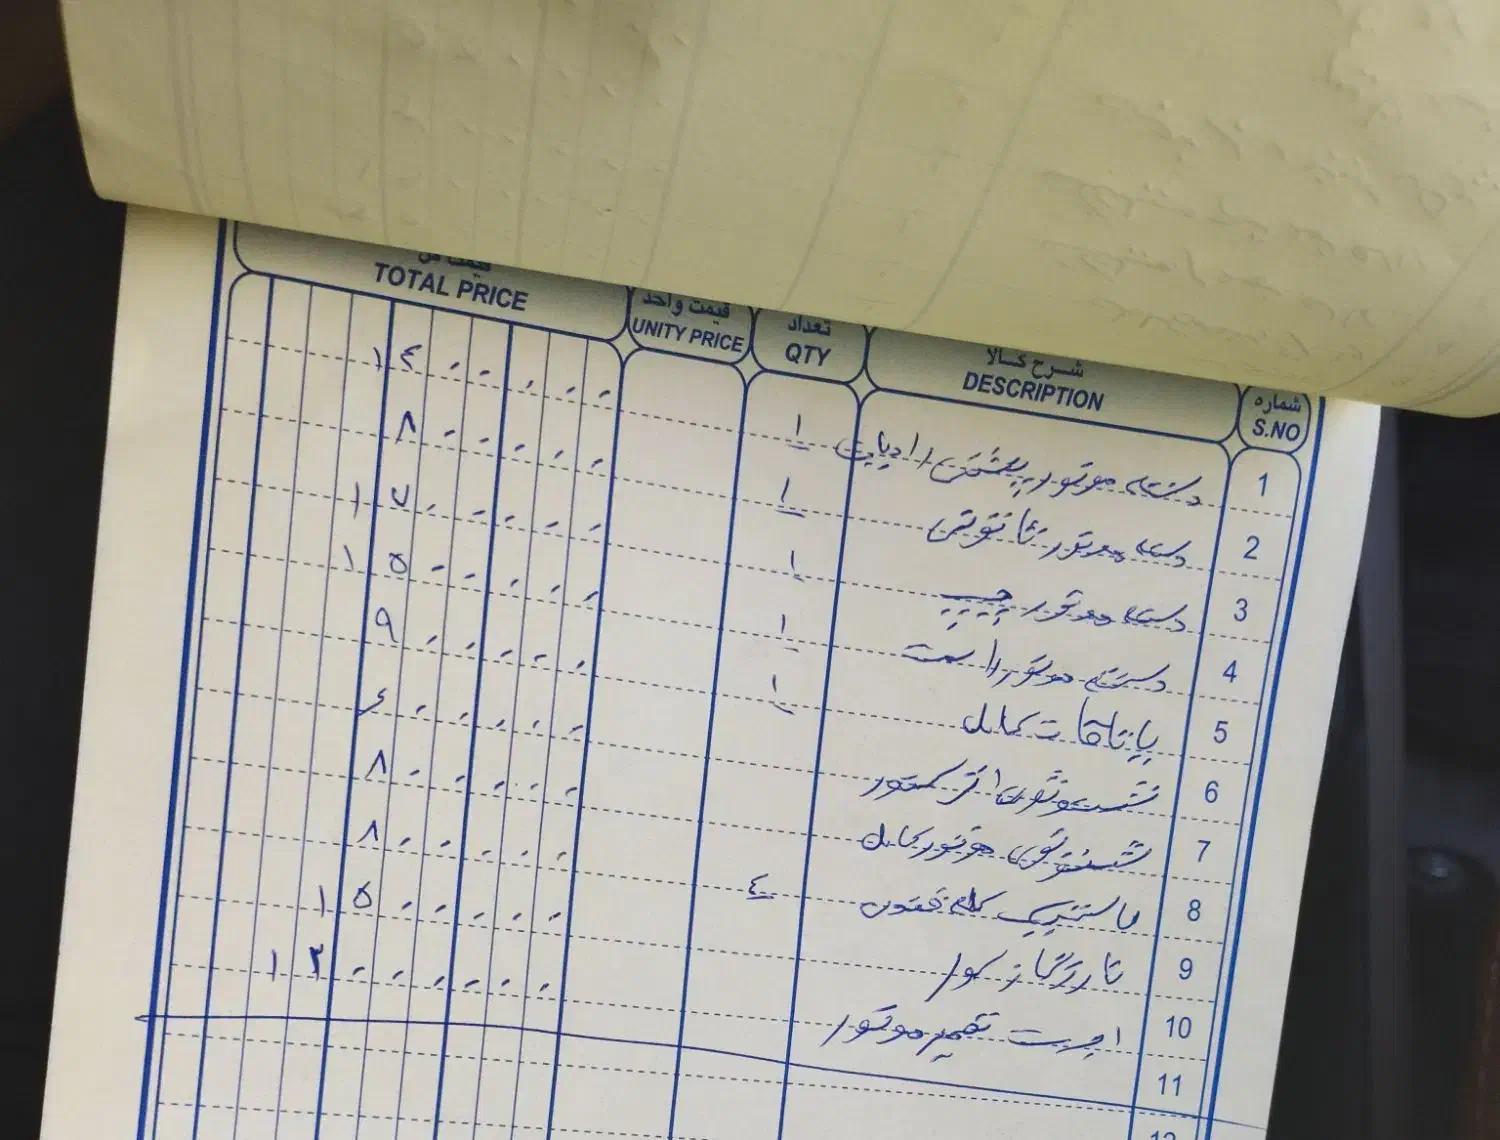 شماره
S.NO
شرح کالا
DESCRIPTION
تعداد
QTY
قیمت واحد
UNITY PRICE
قیمت کل
TOTAL PRICE
1 دسته موتور پشتی رادیاتی ۱ ۱٤۰۰۰۰۰۰
2 دسته موتور شاتونی ۱ ۸۰۰۰۰۰۰
3 دسته موتور چپ ۱ ۱۷۰۰۰۰۰۰
4 دسته موتور راست ۱ ۱۵۰۰۰۰۰۰
5 یاتاقان کامل ۱ ۹۰۰۰۰۰۰
6 شستوشوی ۶۰۰۰۰۰۰
7 شستوشوی موتور کامل ۸۰۰۰۰۰۰
8 لاستیک ٤ ۸۰۰۰۰۰۰
9 شارژ گاز کولر ۱۵۰۰۰۰۰۰
10 اجرت تعمیر موتور ۱۳۰۰۰۰۰۰۰
11
12